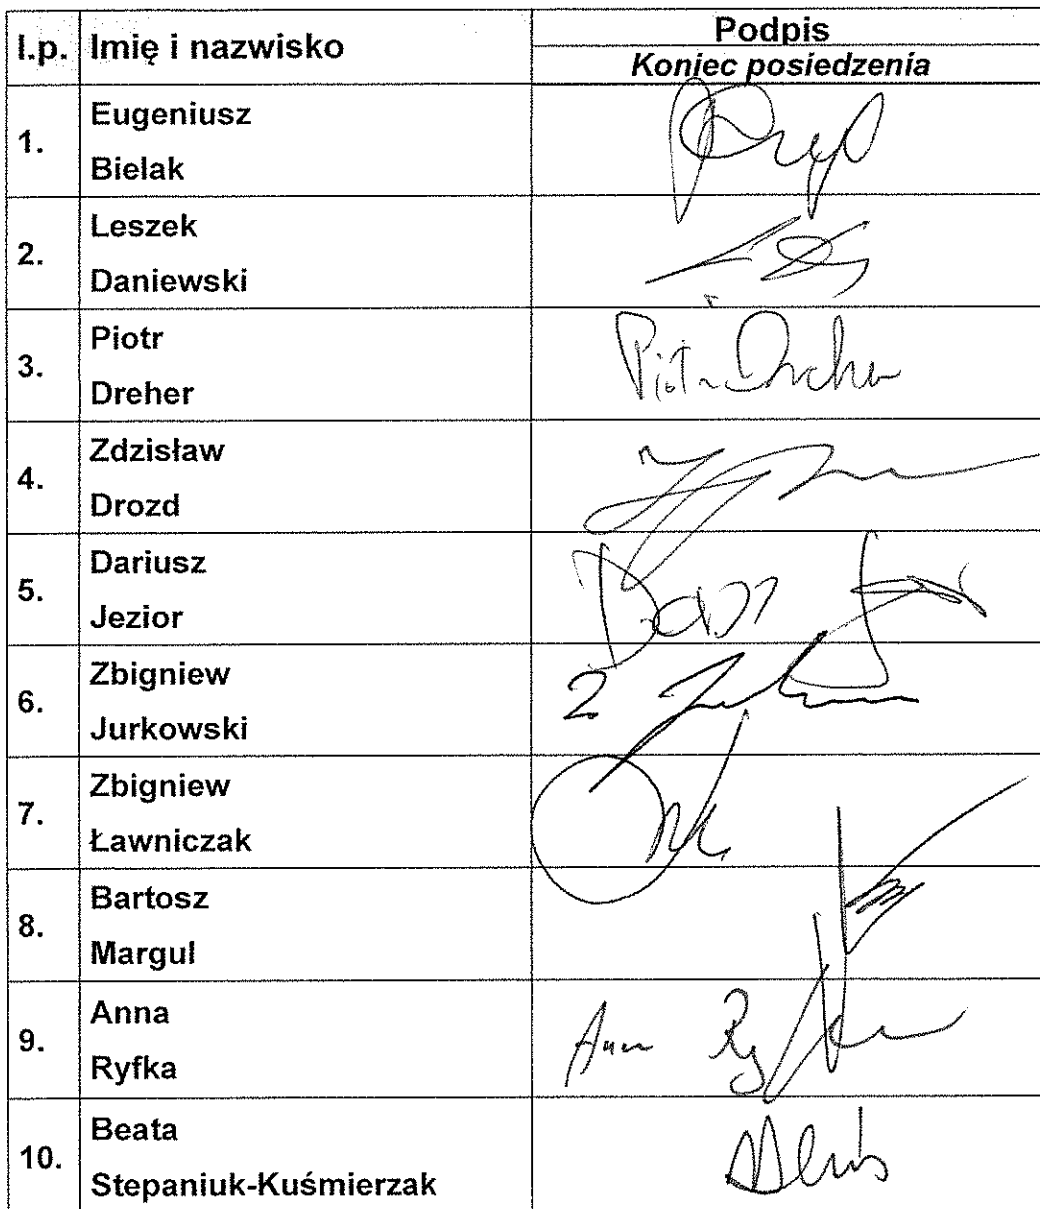 l.p. Imię i nazwisko Podpis
Koniec posiedzenia
1. Eugeniusz
Bielak
2. Leszek
Daniewski
3. Piotr
Dreher Piotr Dreher
4. Zdzisław
Drozd
5. Dariusz
Jezior
6. Zbigniew
Jurkowski
7. Zbigniew
Ławniczak
8. Bartosz
Margul
9. Anna
Ryfka Anna
10. Beata
Stepaniuk-Kuśmierzak